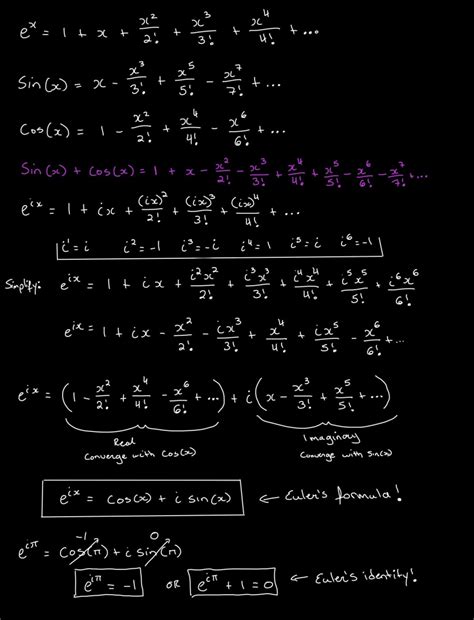 e^x = 1 + x + x²/2! + x³/3! + x⁴/4! + ...
Sin(x) = x - x³/3! + x⁵/5! - x⁷/7! + ...
Cos(x) = 1 - x²/2! + x⁴/4! - x⁶/6! + ...
Sin(x) + Cos(x) = 1 + x - x²/2! - x³/3! + x⁴/4! + x⁵/5! - x⁶/6! - x⁷/7! + ...
e^{ix} = 1 + ix + (ix)²/2! + (ix)³/3! + (ix)⁴/4! + ...
i¹ = i i² = -1 i³ = -i i⁴ = 1 i⁵ = i i⁶ = -1
Simplify: e^{ix} = 1 + ix + i²x²/2! + i³x³/3! + i⁴x⁴/4! + i⁵x⁵/5! + i⁶x⁶/6!
e^{ix} = 1 + ix - x²/2! - ix³/3! + x⁴/4! + ix⁵/5! - x⁶/6! + ...
e^{ix} = (1 - x²/2! + x⁴/4! - x⁶/6! + ...) + i(x - x³/3! + x⁵/5! + ...)
Real Imaginary
Converge with Cos(x) Converge with Sin(x)
e^{ix} = Cos(x) + i Sin(x) ← Euler's formula!
-1 0
e^{iπ} = Cos(π) + i Sin(π)
e^{iπ} = -1 OR e^{iπ} + 1 = 0 ← Euler's identity!